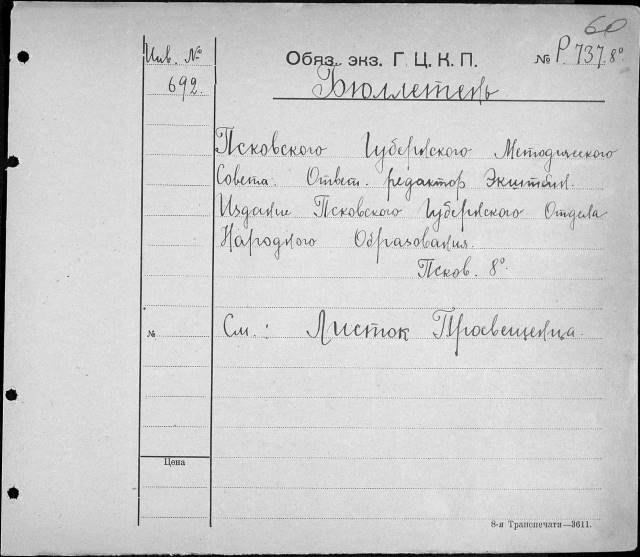 60
Инв. №
692.
Обяз. экз. Г. Ц. К. П.
№ Р. 737. 8°
Бюллетень
Псковского Губернского Методического
Совета. Ответ. редактор Экштейн.
Издание Псковского Губернского Отдела
Народного Образования.
Псков. 8°.
№
См.: Листок Просвещенца.
Цена
8-я Транспечати—3611.